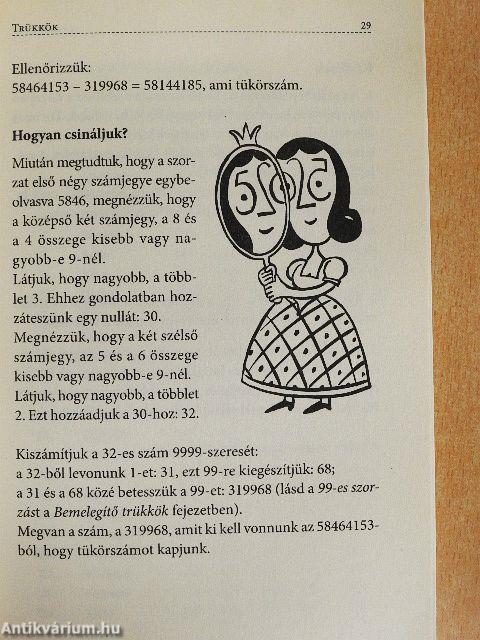 TRÜKKÖK 29
Ellenőrizzük:
58464153 – 319968 = 58144185, ami tükörszám.
Hogyan csináljuk?
Miután megtudtuk, hogy a szor-
zat első négy számjegye egybe-
olvasva 5846, megnézzük, hogy
a középső két számjegy, a 8 és
a 4 összege kisebb vagy na-
gyobb-e 9-nél.
Látjuk, hogy nagyobb, a több-
let 3. Ehhez gondolatban hoz-
záteszünk egy nullát: 30.
Megnézzük, hogy a két szélső
számjegy, az 5 és a 6 összege
kisebb vagy nagyobb-e 9-nél.
Látjuk, hogy nagyobb, a többlet
2. Ezt hozzáadjuk a 30-hoz: 32.
Kiszámítjuk a 32-es szám 9999-szeresét:
a 32-ből levonunk 1-et: 31, ezt 99-re kiegészítjük: 68;
a 31 és a 68 közé betesszük a 99-et: 319968 (lásd a 99-es szor-
zást a Bemelegítő trükkök fejezetben).
Megvan a szám, a 319968, amit ki kell vonnunk az 58464153-
ból, hogy tükörszámot kapjunk.
Antikvárium.hu